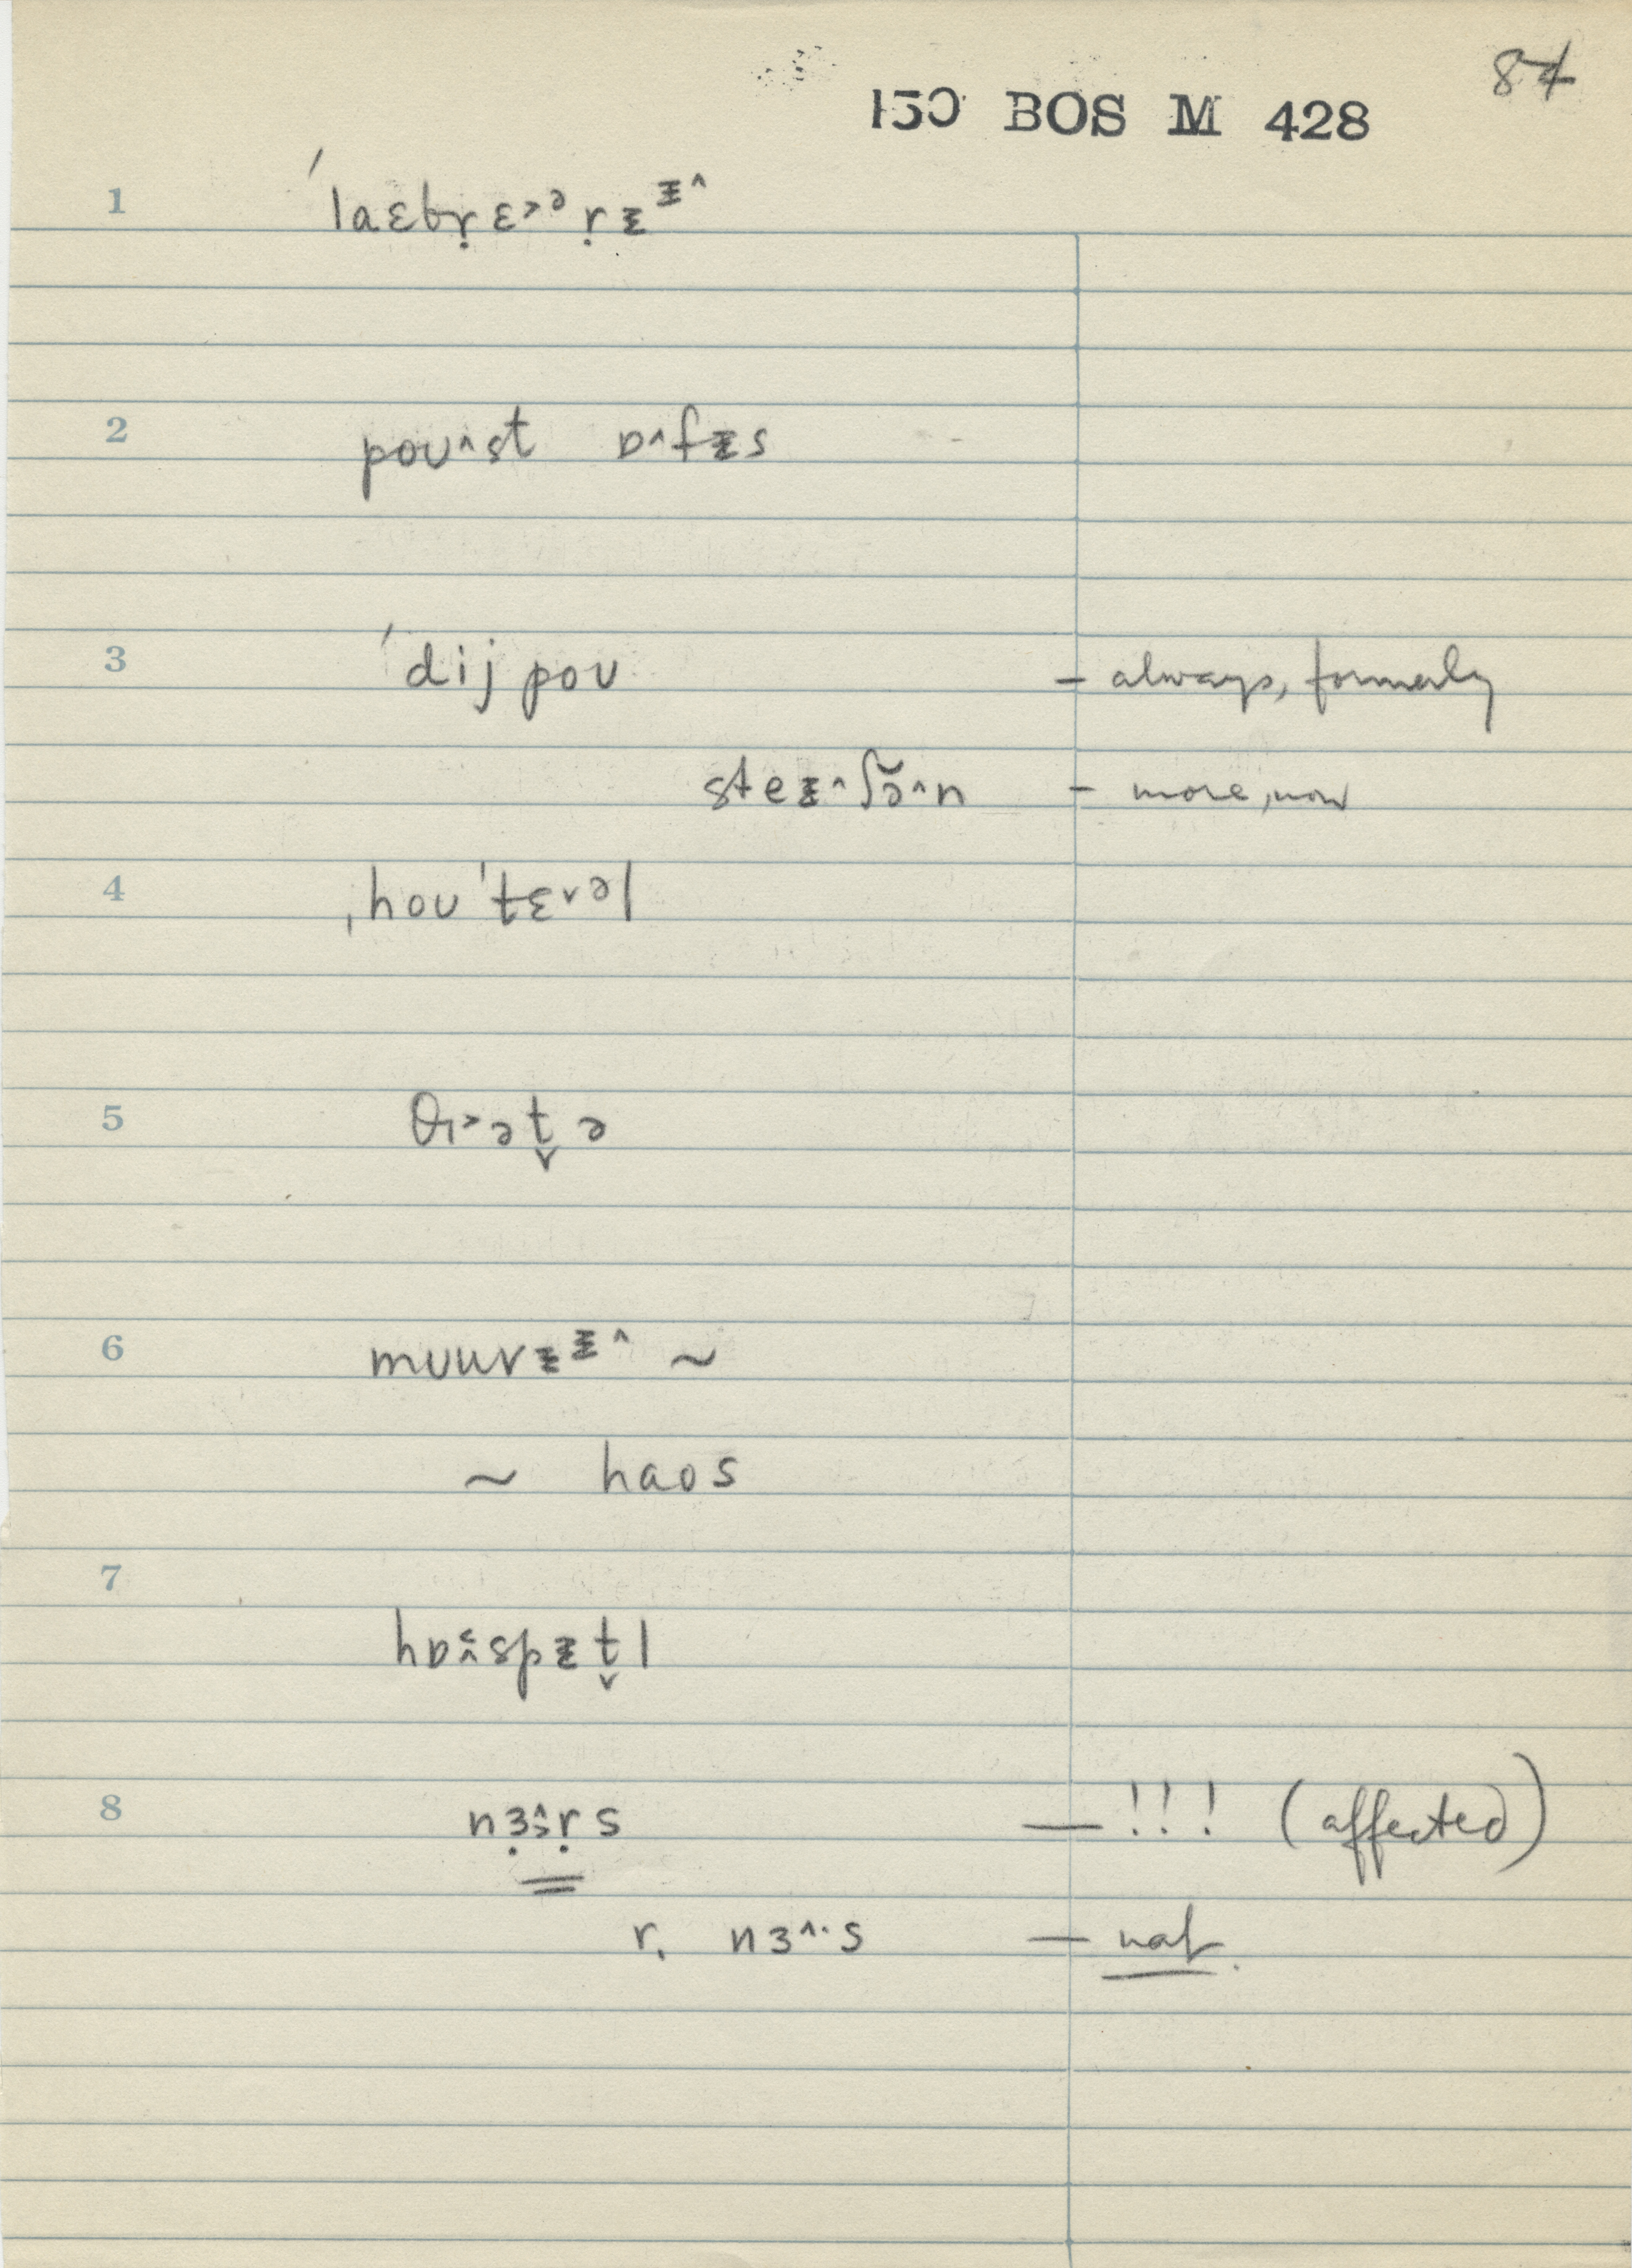 84
150 BOS M 428
1 ˈˈlaɛbṛɛ˃ᵊṛɪ̵ᶤ̵˄
2 poʊ˄st ɒ˄fɪ̵s
3 ˈˈdijpoʊ – always, formerly
steɪ̵˄ʃə̆˄n – more, now
4 ˌhoʊˈtɛ˅ᵊl
5 θɪ˃ət̬ə
6 muuvɪ̵ᶤ̵˄ ~
~ haos
7
hɒ˄˂spɪ̵t̬l
8 nɜ̣˄ṛs — !!! (affected)
r. nɜ˄·s — nat.